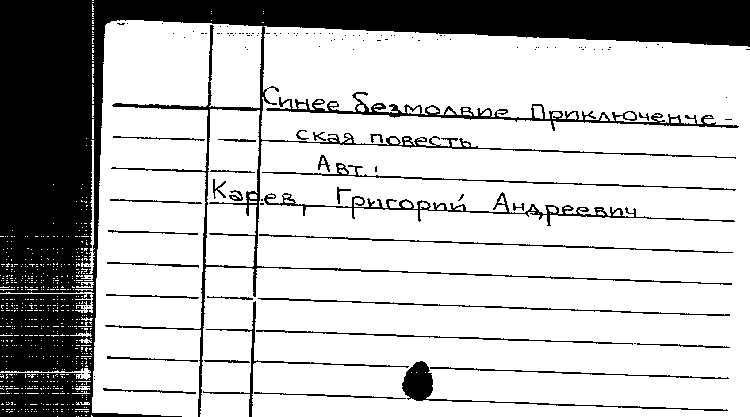 Синее безмолвие. Приключенче-
ская повесть.
Авт.:
Карев, Григорий Андреевич